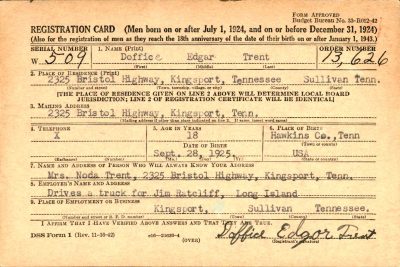 FORM APPROVED
Budget Bureau No. 33-R012-42
REGISTRATION CARD (Men born on or after July 1, 1924, and on or before December 31, 1924)
(Also for the registration of men as they reach the 18th anniversary of the date of their birth on or after January 1, 1943.)
SERIAL NUMBER 1. NAME (Print) ORDER NUMBER
W 509 Doffice Edgar Trent 13,626
(First) (Middle) (Last)
2. PLACE OF RESIDENCE (Print)
2325 Bristol Highway, Kingsport, Tennessee Sullivan Tenn.
(Number and street) (Town, township, village, or city) (County) (State)
[THE PLACE OF RESIDENCE GIVEN ON LINE 2 ABOVE WILL DETERMINE LOCAL BOARD
JURISDICTION; LINE 2 OF REGISTRATION CERTIFICATE WILL BE IDENTICAL]
3. MAILING ADDRESS
2325 Bristol Highway, Kingsport, Tenn.
[Mailing address if other than place indicated on line 2. If same, insert word same]
4. TELEPHONE 5. AGE IN YEARS 6. PLACE OF BIRTH
X 18 Hawkins Co., Tenn
DATE OF BIRTH (Town or county)
Sept. 28, 1925, USA
(Exchange) (Number) (Mo.) (Day) (Yr.) (State or country)
7. NAME AND ADDRESS OF PERSON WHO WILL ALWAYS KNOW YOUR ADDRESS
Mrs. Noda Trent, 2325 Bristol Highway, Kingsport, Tenn.
8. EMPLOYER'S NAME AND ADDRESS
Drives a truck for Jim Ratcliff, Long Island
9. PLACE OF EMPLOYMENT OR BUSINESS
Kingsport, Sullivan Tennessee.
(Number and street or R. F. D. number) (Town) (County) (State)
I AFFIRM THAT I HAVE VERIFIED ABOVE ANSWERS AND THAT THEY ARE TRUE.
DSS Form 1 (Rev. 11-16-42) (OVER) Doffice Edgar Trent
(Registrant's signature)